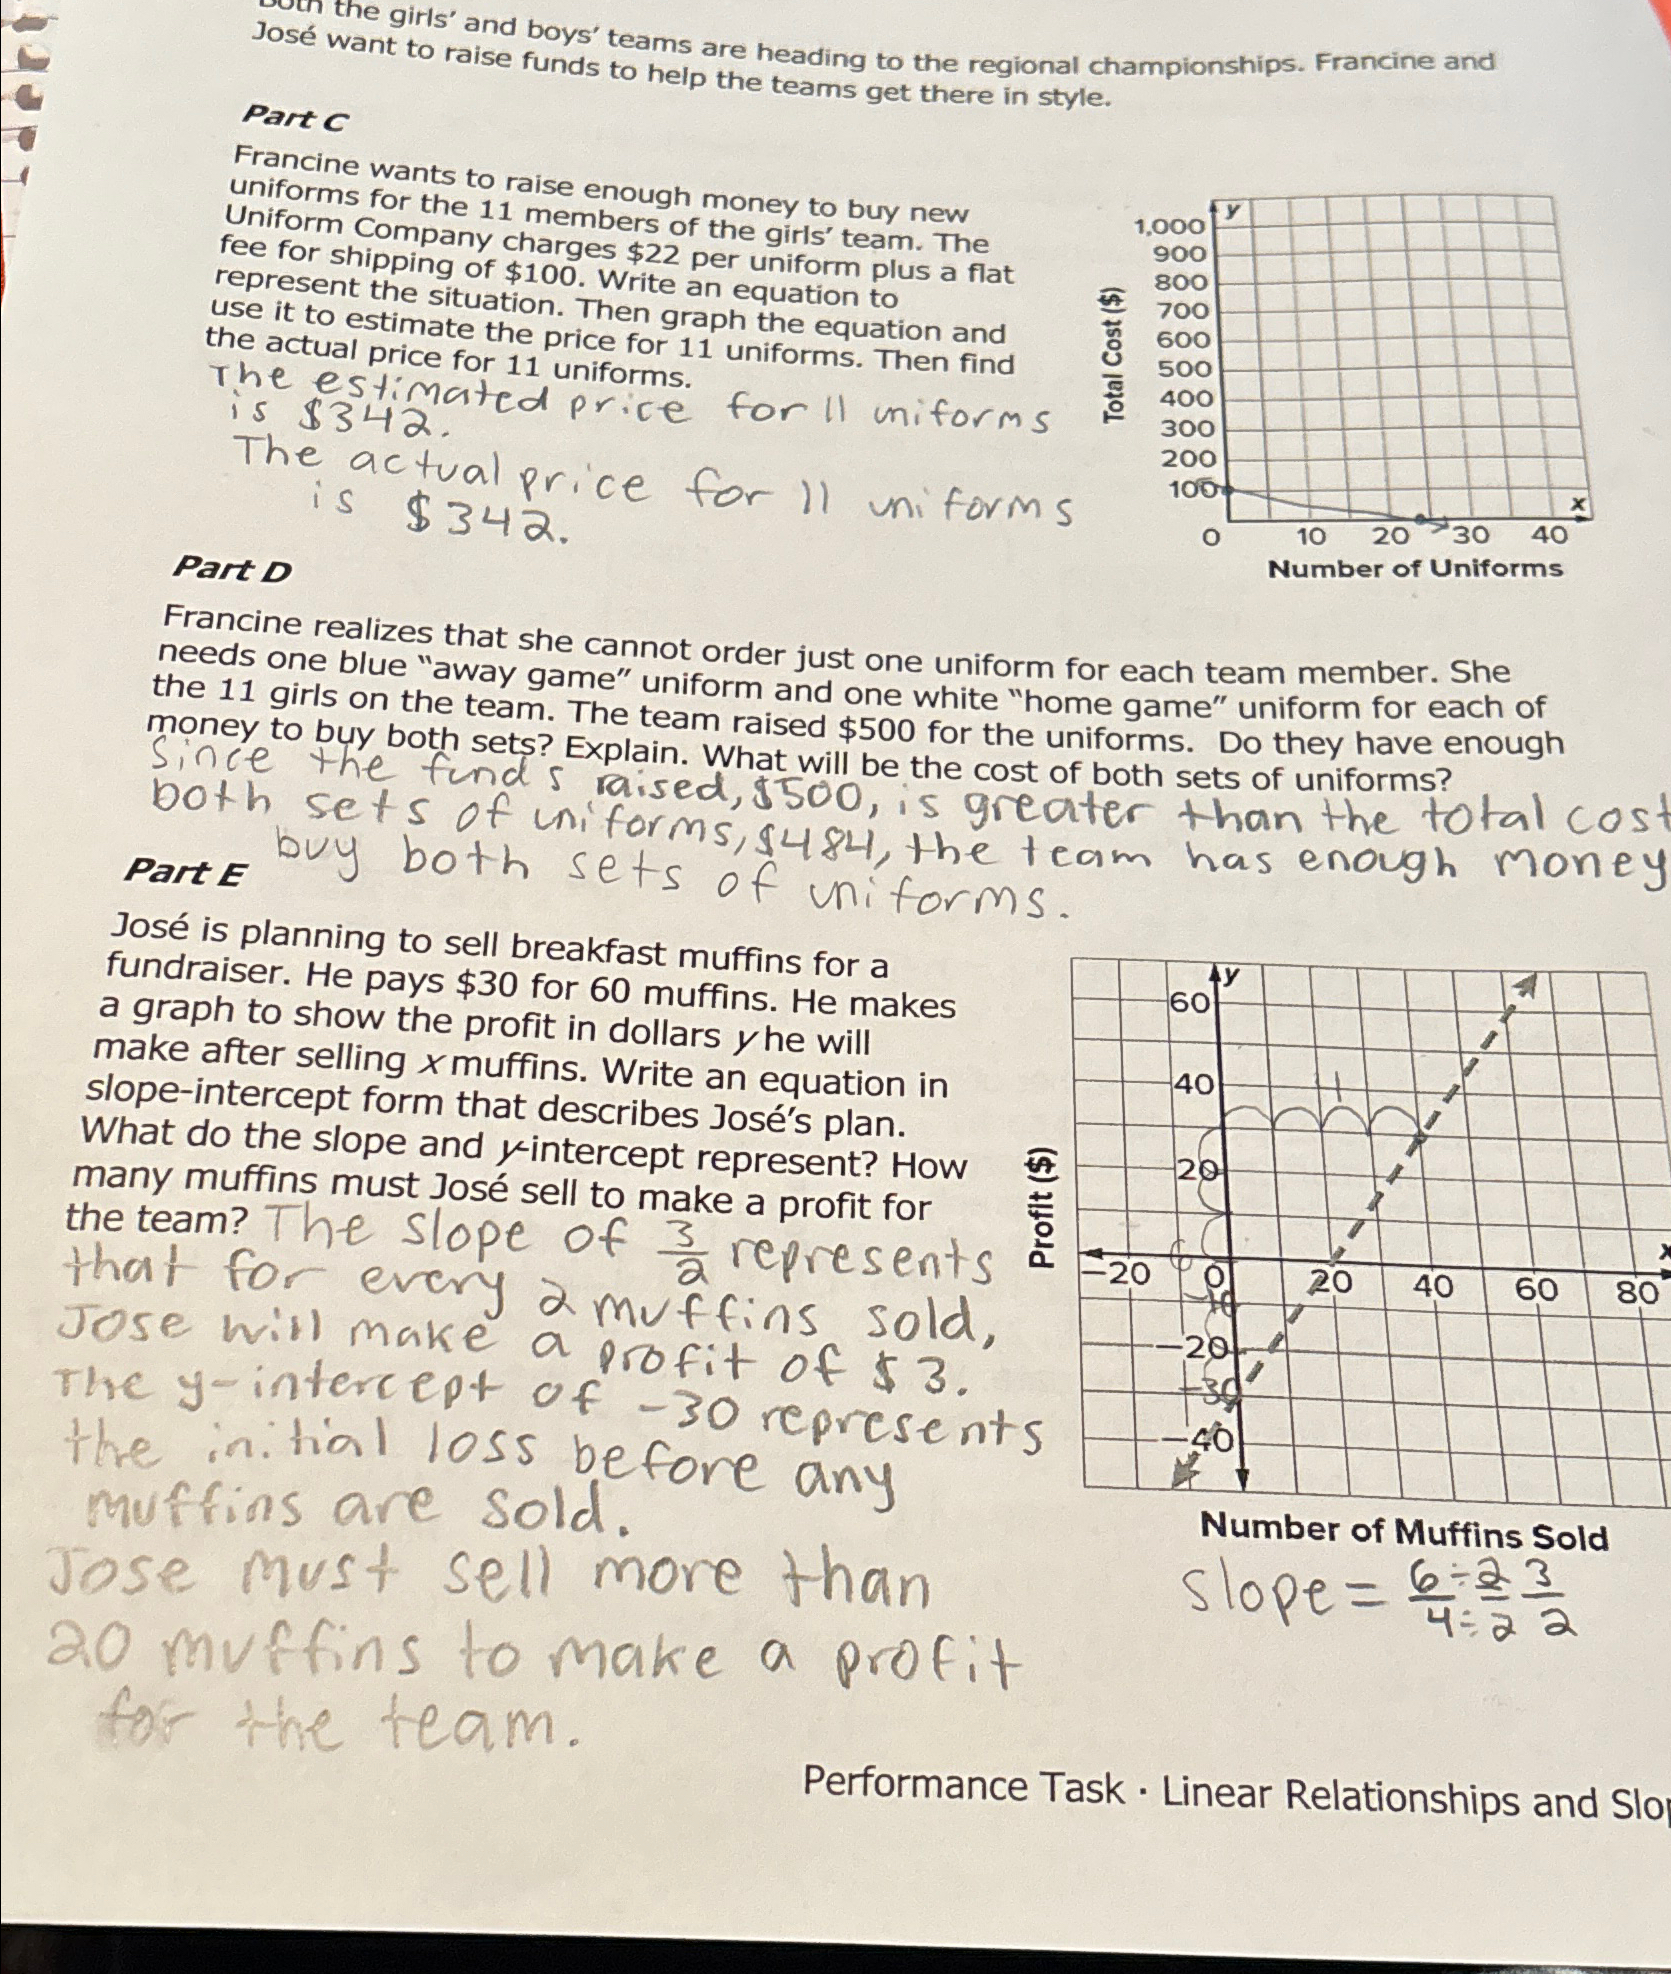 the girls' and boys' teams are heading to the regional championships. Francine and
José want to raise funds to help the teams get there in style.
Part C
Francine wants to raise enough money to buy new
uniforms for the 11 members of the girls' team. The
Uniform Company charges $22 per uniform plus a flat
fee for shipping of $100. Write an equation to
represent the situation. Then graph the equation and
use it to estimate the price for 11 uniforms. Then find
the actual price for 11 uniforms.
The estimated price for 11 uniforms
is $342.
The actual price for 11 uniforms
is $342.
y
1,000
900
800
700
600
500
400
300
200
100
x
0 10 20 30 40
Total Cost ($)
Number of Uniforms
Part D
Francine realizes that she cannot order just one uniform for each team member. She
needs one blue "away game" uniform and one white "home game" uniform for each of
the 11 girls on the team. The team raised $500 for the uniforms. Do they have enough
money to buy both sets? Explain. What will be the cost of both sets of uniforms?
Since the funds raised, $500, is greater than the total cost
both sets of uniforms, $484, the team has enough money
buy both sets of uniforms.
Part E
José is planning to sell breakfast muffins for a
fundraiser. He pays $30 for 60 muffins. He makes
a graph to show the profit in dollars y he will
make after selling x muffins. Write an equation in
slope-intercept form that describes José's plan.
What do the slope and y-intercept represent? How
many muffins must José sell to make a profit for
the team? The slope of 3/2 represents
that for every 2 muffins sold,
Jose will make a profit of $3.
The y-intercept of -30 represents
the initial loss before any
muffins are sold.
Jose must sell more than
20 muffins to make a profit
for the team.
y
60
40
11
20
6
x
-20 0 20 40 60 80
-10
-20
-30
-40
Profit ($)
Number of Muffins Sold
slope = 6÷2/4÷2 3/2
Performance Task · Linear Relationships and Slo